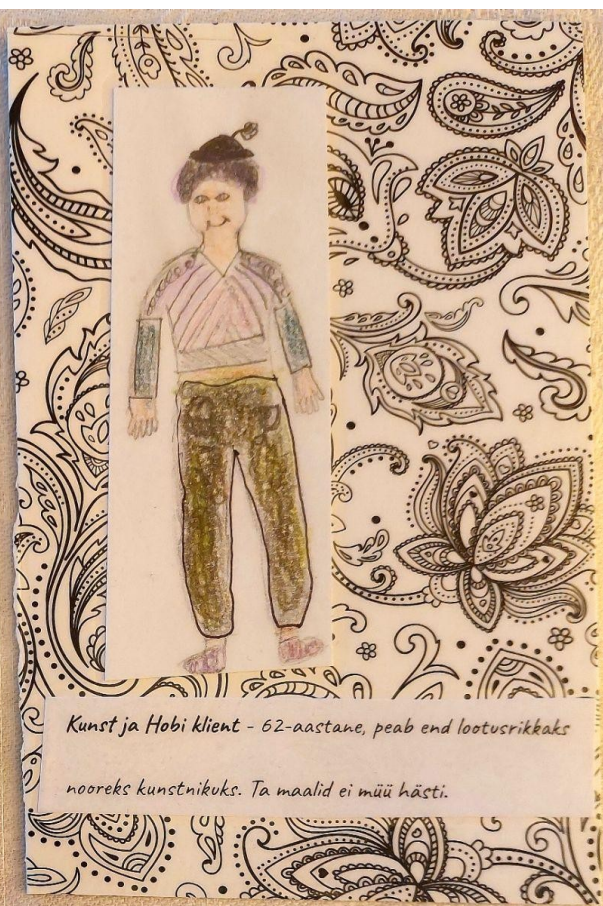 Kunst ja Hobi klient - 62-aastane, peab end lootusrikkaks
nooreks kunstnikuks. Ta maalid ei müü hästi.